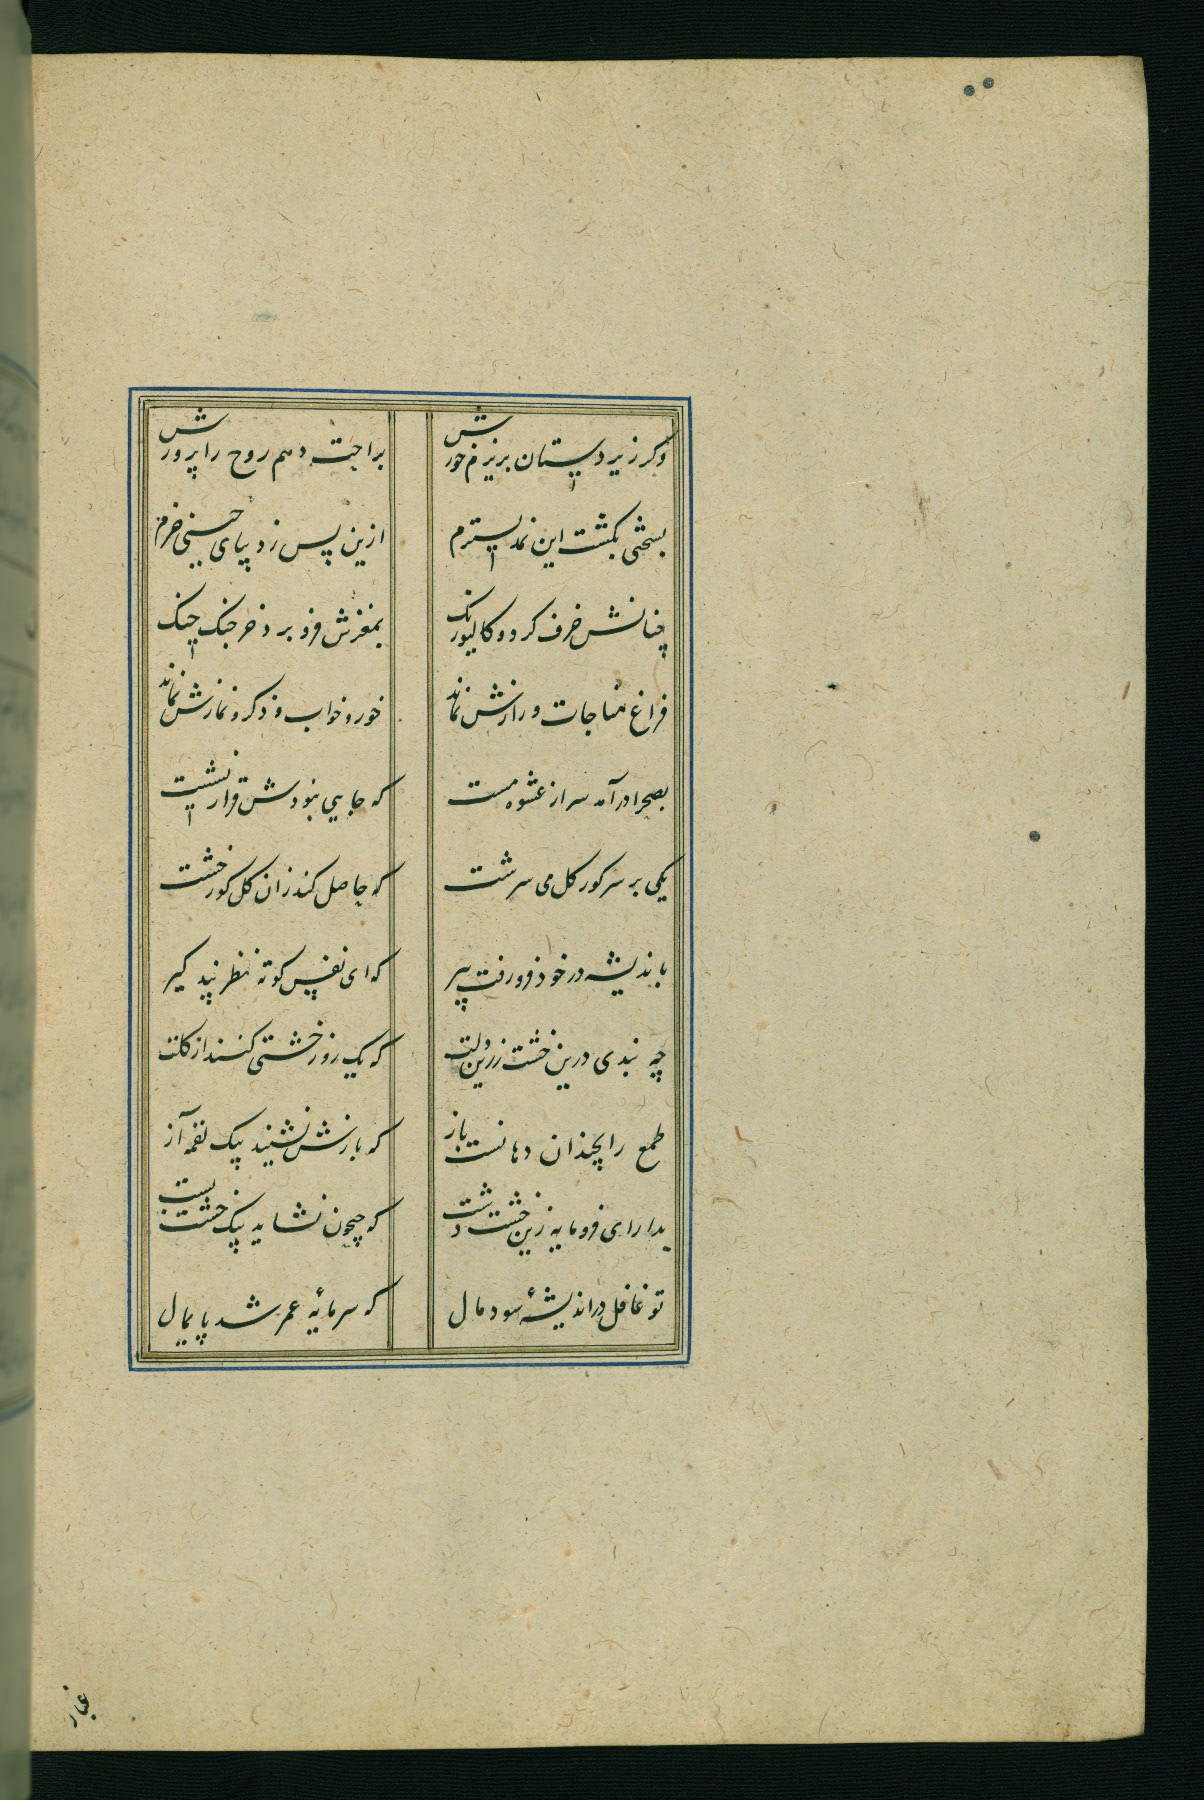 وکر زیر دستان بریزم خورش براحت دهم روح را پرورش
بسختی بکشت این نمد بسترم ازین پس ز دیبای چینی خرم
چنانش خرف کرد و کالیورنک بمغزش فرو برد خرجنک چنک
فراغ مناجات و رازش نماند خور و خواب و ذکر و نمازش نماند
بصحرا درآمد سر از عشوه مست که جایی نبودش قرار نشست
یکی بر سر کور کل می سرشت که حاصل کند زان کل کور خشت
باندیشه در خود فرو رفت پیر که ای نفس کوته نظر پند کیر
چه بندی درین خشت زرین دلت که یک روز خشتی کنند از کلت
طمع را نچندان دهانست باز که بازش نشیند بیک لقمه آز
بدار ای فرومایه زین خشت دست که جیحون نشاید بیک خشت بست
تو غافل در اندیشهٔ سود مال که سرمایهٔ عمر شد پایمال
غبار